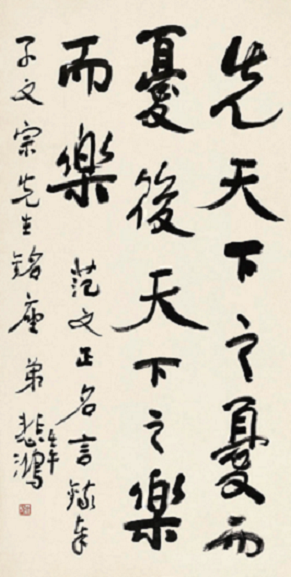 先天下之憂而
憂後天下之樂
而樂
范文正名言錄奉
子文宗先生銘座 弟悲鴻